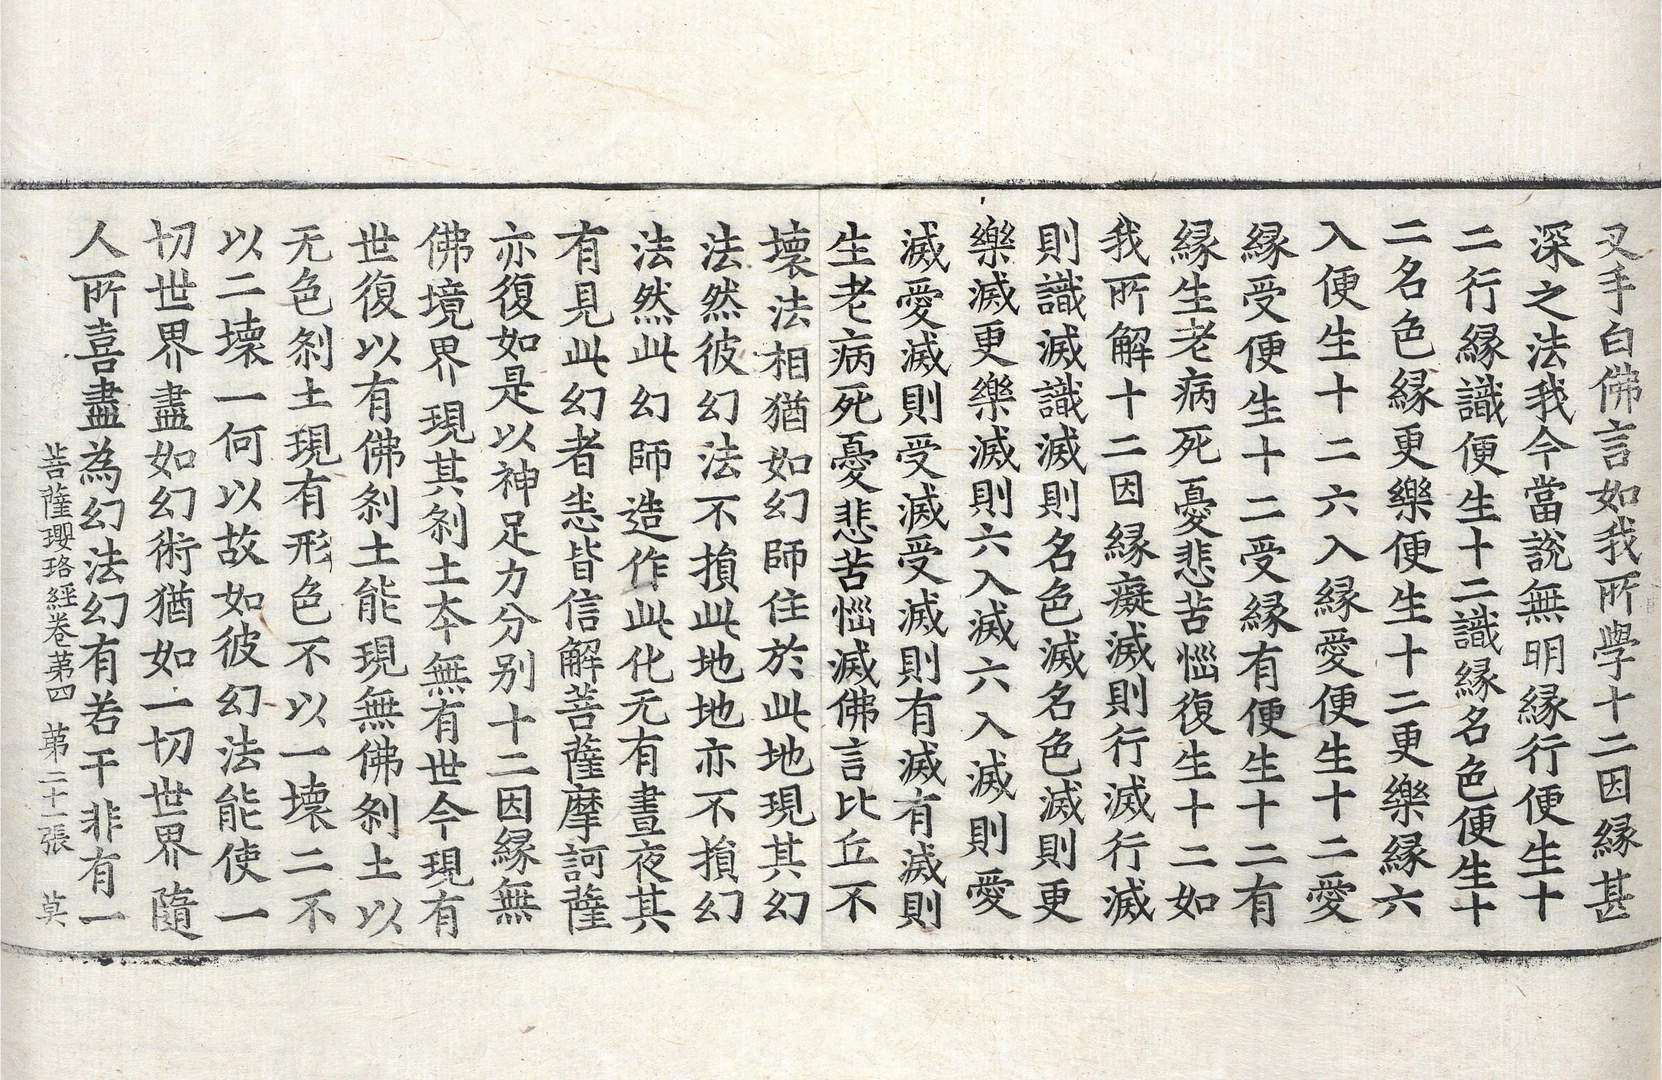 叉手白佛言如我所學十二因縁甚
深之法我今當說無明縁行便生十
二行縁識便生十二識縁名色便生十
二名色縁更樂便生十二更樂縁六
入便生十二六入縁愛便生十二愛
縁受便生十二受縁有便生十二有
縁生老病死憂悲苦惱復生十二如
我所解十二因縁癡滅則行滅行滅
則識滅識滅則名色滅名色滅則更
樂滅更樂滅則六入滅六入滅則愛
滅愛滅則受滅受滅則有滅有滅則
生老病死憂悲苦惱滅佛言比丘不
壞法相猶如幻師住於此地現其幻
法然彼幻法不損此地地亦不損幻
法然此幻師造作此化无有晝夜其
有見此幻者恚皆信解菩薩摩訶薩
亦復如是以神足力分别十二因縁無
佛境界現其刹土本無有世今現有
世復以有佛刹土能現無佛刹土以
无色刹土現有形色不以一壞二不
以二壞一何以故如彼幻法能使一
切世界盡如幻術猶如一切世界隨
人所喜盡為幻法幻有若干非有一
菩薩瓔珞經卷第四 第二十一張 莫